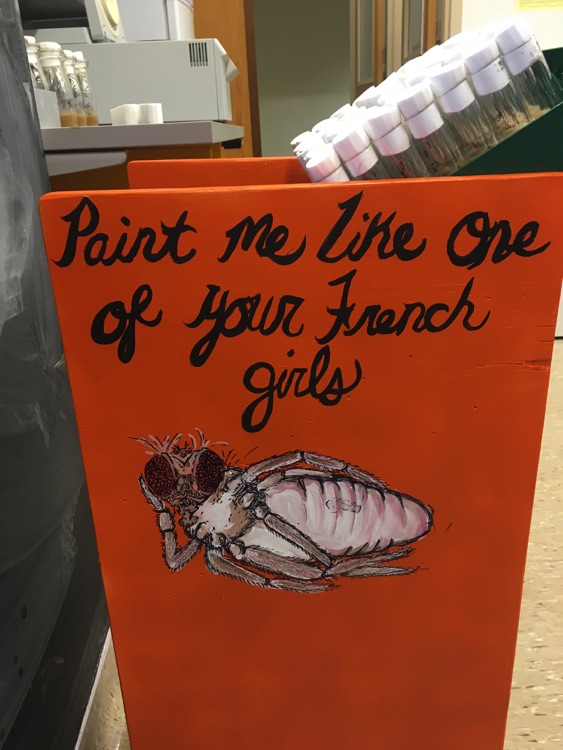 Paint me like One
of your French
girls